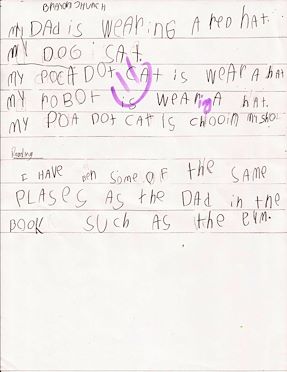 my DAD is WEARING A RED hat.
my DOG i CAt
my POCA DOt CAt is WEAR A hAt
MY ROBOt is WEARING A hat.
MY POA DOT CAT IS
Reading
I HAVE ben some OF the SAME
PLASES AS the DAD in the
BOOK SUCH AS the GYM.